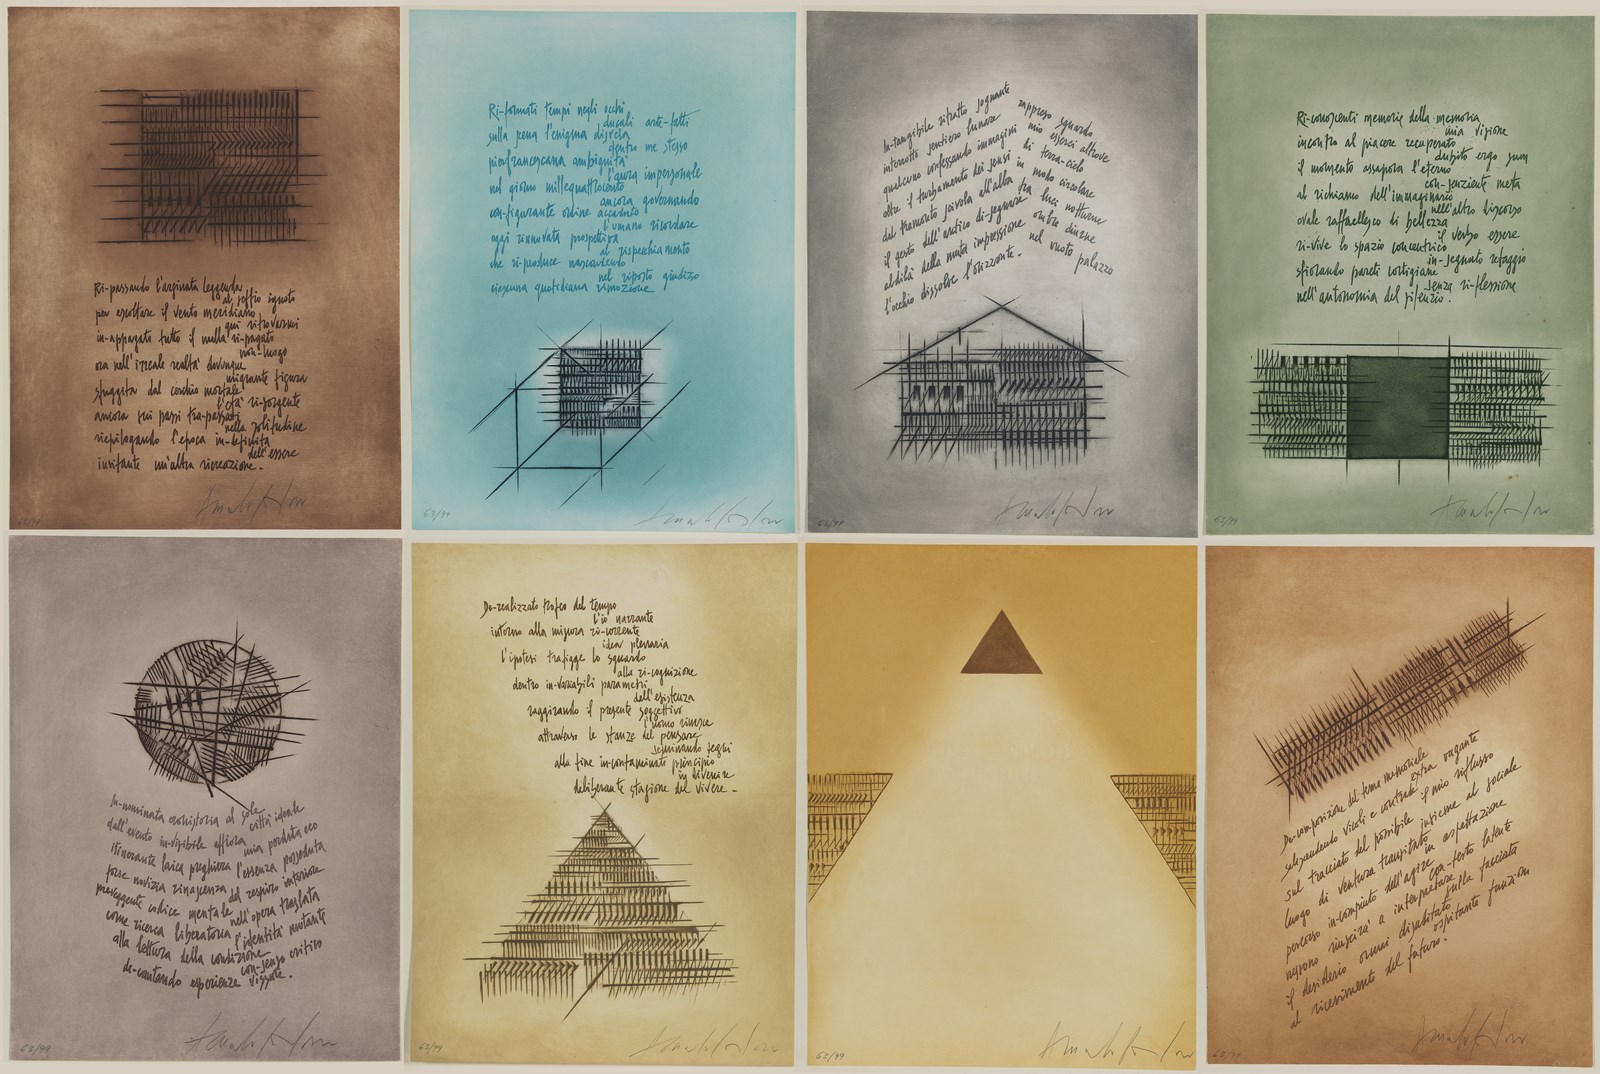 Ri-passando l'arginata leggenda
al soffio ignoto
per ascoltare il vento meridiano
qui ritrovarmi
in-appagato tutto il nulla ri-pagato
non-luogo
ora nell'irreale realtà dovunque
migrante figura
sfuggita dal cerchio mortale
l'età ri-sorgente
ancora sui passi tra-passati
nella solitudine
riepilogando l'epoca in-definita
dell'essere
invitante un'altra ricreazione.
63/99
Ri-formati tempi negli occhi
ducali arte-fatti
sulla pena l'enigma di
dentro me stesso
pierfrancescana ambiguità
l'aura impersonale
nel giorno millequattrocento
ancora governando
con-figurante ordine accanto
l'umano ricordare
oggi rinnovata prospettiva
al rispecchiamento
che ri-produce nascondendo
nel riposto giudizio
ciascuna quotidiana rimozione
63/99
In-tangibile ritratto sognante
rappreso sguardo
interrotti sentiero lunare
mio esserci altrove
qualcuno confessando immagini
di terra-cielo
oltre il turbamento dei sensi in
modo circolare
dal tramonto scivola all'alba fra
luci notturne
il gesto dell'antico di-segnare
ombre diurne
aldilà della muta impressione
nel vuoto palazzo
l'occhio dissolve l'orizzonte.
63/99
Ri-conoscenti memorie della memoria
mia visione
incontro al piacere recuperato
dubito ergo sum
il momento assapora l'eterno
con-senziente meta
al richiamo dell'immaginario
nell'altro discorso
ovale raffaellesco di bellezza
il verbo essere
ri-vive lo spazio concentrico
in-segnato retaggio
sfiorando pareti cortigiane
senza ri-flessione
nell'autonomia del silenzio.
63/99
In-nominata cronistoria al sole
città ideale
dall'evento in-visibile affiora
mia perduta eco
itinerante laica preghiera
l'essenza posseduta
forse novizia rinascenza
del respiro interiore
preveggente codice mentale
nell'opera traslata
come ricerca liberatoria
l'identità mutante
alla lettura della condizione
con-senso critico
de-cantando esperienze vissute.
63/99
De-realizzato trofeo del tempo
l'io narrante
intorno alla misura ri-corrente
idea plenaria
l'ipotesi trafigge lo sguardo
alla ri-cognizione
dentro in-variabili parametri
dell'esistenza
raggirando il presente soggettivo
l'uomo riesce
attraverso le stanze del pensare
seminando segni
alla fine in-contaminato principio
in divenire
deliberante stagione del vivere.
63/99
63/99
De-composizione del tema memoriale
extra vagante
salendo vicoli e contrade
il mio riflusso
sul tracciato del possibile
insieme al sociale
luogo di ventura transitato
in aspettazione
percorso in-compiuto dell'agire
con-testo latente
nessuno riuscirà a interpretare
sulla facciata
il desiderio ormai disabitato
ospitante funzioni
al ricevimento del futuro.
63/99